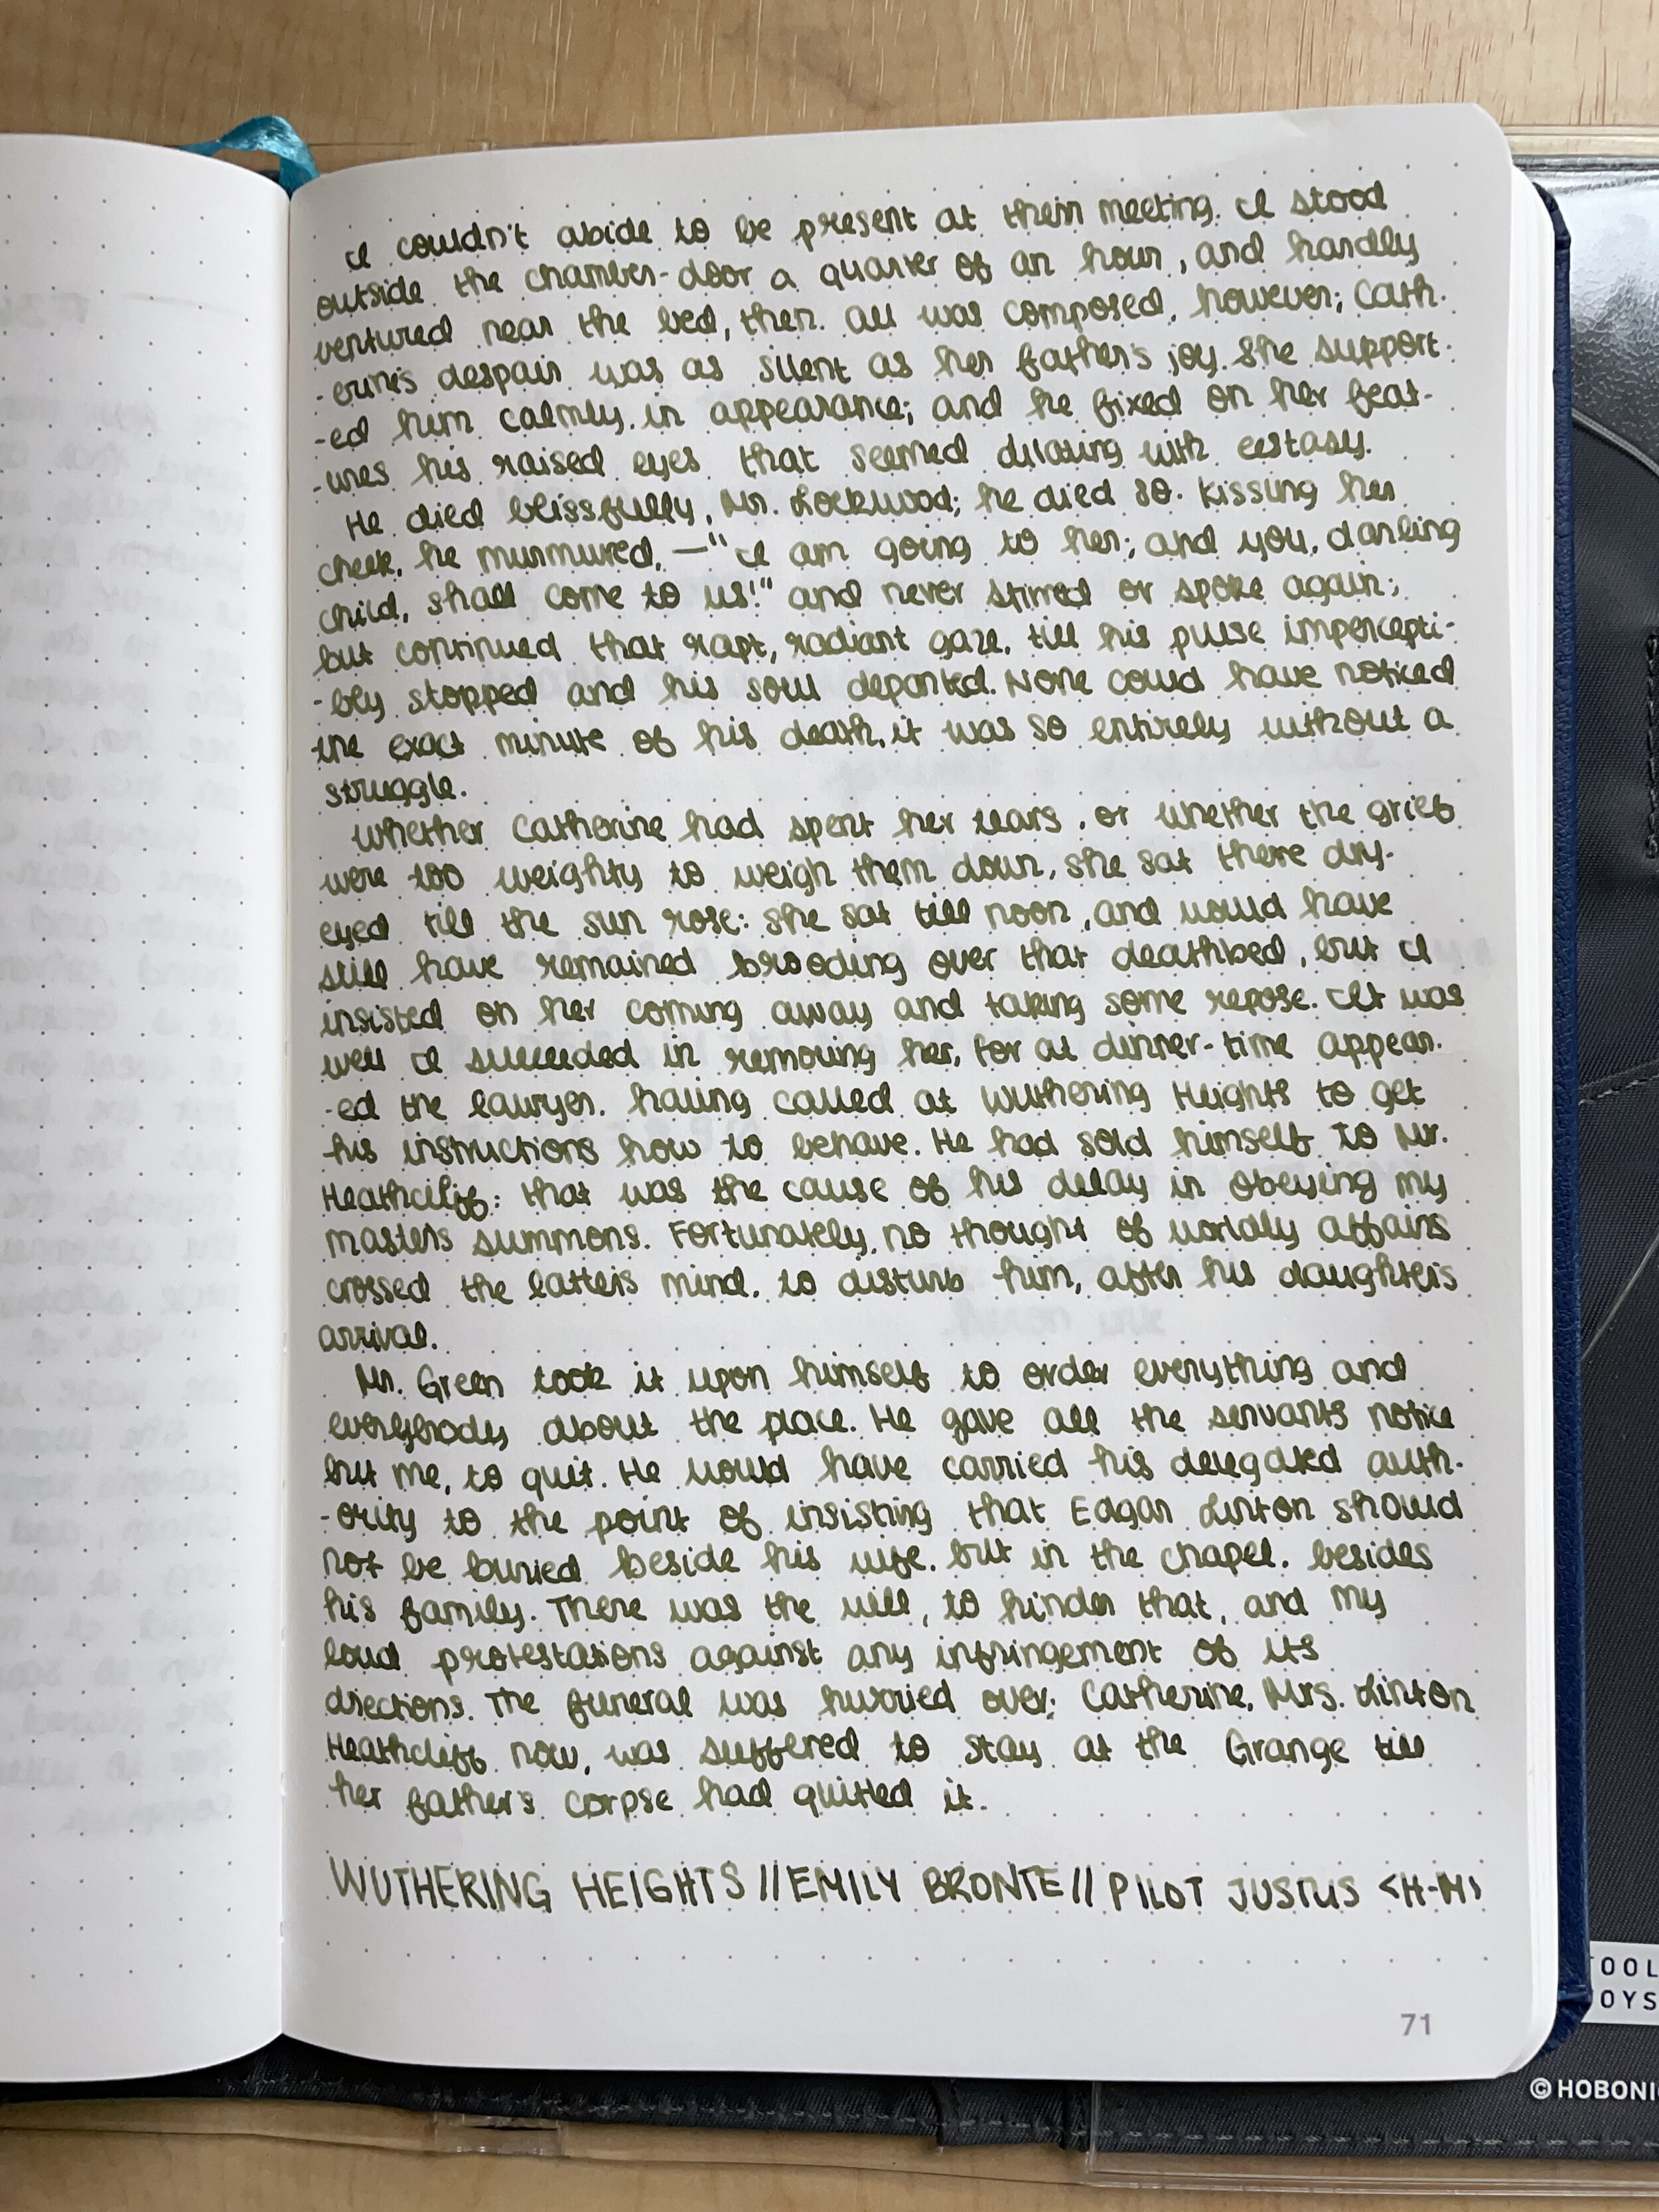 I couldn't abide to be present at their meeting. I stood
outside the chamber-door a quarter of an hour, and hardly
ventured near the bed, then. All was composed, however; Cath-
-erine's despair was as silent as her father's joy. She support-
-ed him calmly, in appearance; and he fixed on her feat-
-ures his raised eyes that seemed dilating with ecstasy.
He died blissfully, Mr. Lockwood; he died so. Kissing her
cheek, he murmured, —"I am going to her; and you, darling
child, shall come to us!" and never stirred or spoke again;
but continued that rapt, radiant gaze, till his pulse impercepti-
-bly stopped and his soul departed. None could have noticed
the exact minute of his death, it was so entirely without a
struggle.
Whether Catherine had spent her tears, or whether the grief
were too weighty to weigh them down, she sat there dry-
eyed till the sun rose: she sat till noon, and would have
still have remained brooding over that deathbed, but I
insisted on her coming away and taking some repose. It was
well I succeeded in removing her, for at dinner-time appear-
-ed the lawyer, having called at Wuthering Heights to get
his instructions how to behave. He had sold himself to Mr.
Heathcliff: that was the cause of his delay in obeying my
master's summons. Fortunately, no thought of worldly affairs
crossed the latter's mind, to disturb him, after his daughter's
arrival.
Mr. Green took it upon himself to order everything and
everybody about the place. He gave all the servants notice
but me, to quit. He would have carried his delegated auth-
-ority to the point of insisting that Edgar Linton should
not be buried beside his wife, but in the chapel, besides
his family. There was the will, to hinder that, and my
loud protestations against any infringement of its
directions. The funeral was hurried over; Catherine, Mrs. Linton
Heathcliff now, was suffered to stay at the Grange till
her father's corpse had quitted it.
WUTHERING HEIGHTS // EMILY BRONTE // PILOT JUSTUS <H-M>
71
© HOBONI